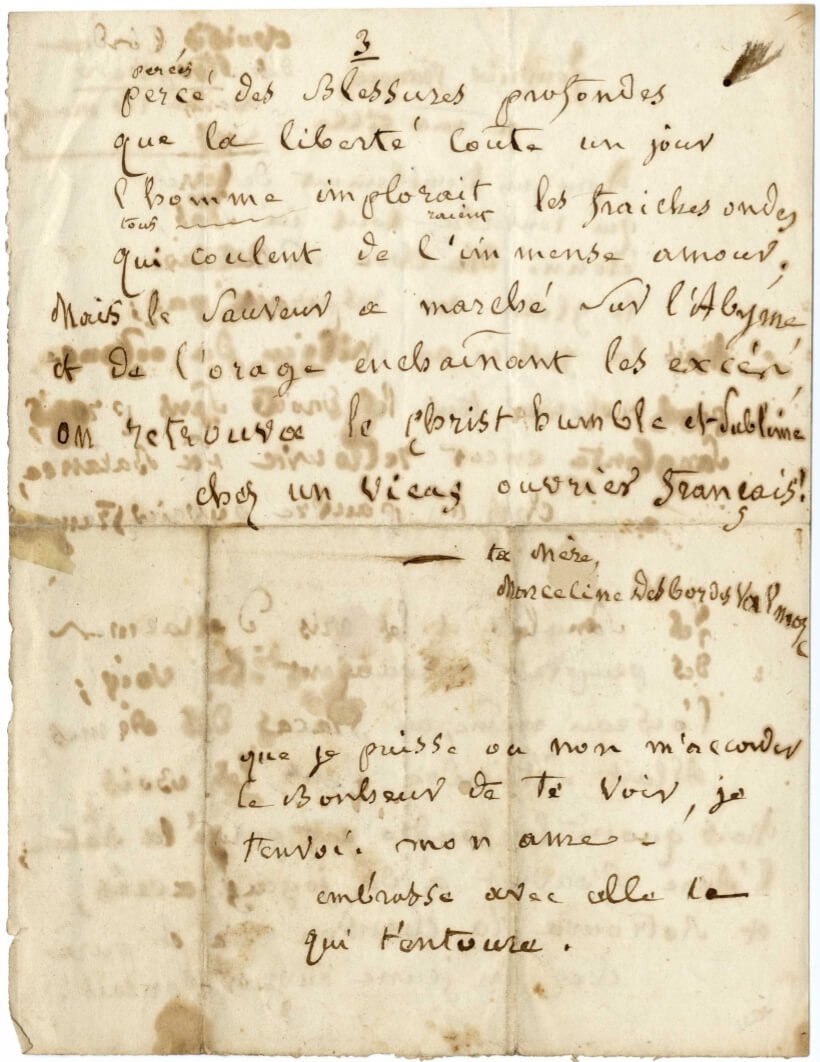 3
percés
percé des Blessures profondes
que la liberté Coûte un jour
l'homme implorait les fraiches ondes
tous raient
qui coulent de l'immense amour.
Mais le Sauveur a marché sur l'Abyme
et de l'orage enchaînant les excès,
on retrouva le Christ humble et Sublime
chez un vieux ouvrier français!
ta Mère,
Marceline DesBordes Valmore
que je puisse ou non m'accorder
le Bonheur de te voir, je
t'envoi. mon ame.
embrasse avec elle ce
qui t'entoure.